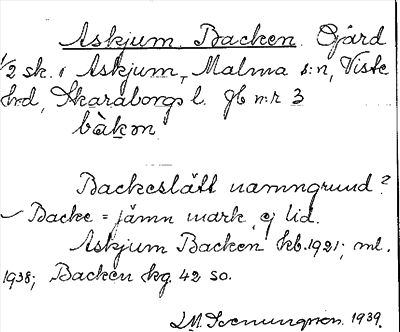 Askjum Backen. Gård
1/2 sk. i Askjum, Malma s:n, Viste
hd, Skaraborgs l. Jb n:r 3
bàken
Backeslätt namngrund?
Backe = jämn mark, ej lid.
Askjum Backen kb. 1921; ml.
1938; Backen kg. 42 so.
1939.